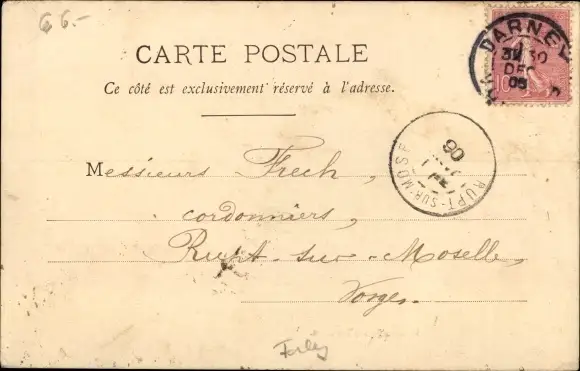 66.-
DARNEY
30
DEC
05
10
CARTE POSTALE
Ce côté est exclusivement réservé à l'adresse.
RUPT-SUR-MOSELLE
06
Messieurs Frech,
cordonniers,
Rupt-sur-Moselle,
Vosges.